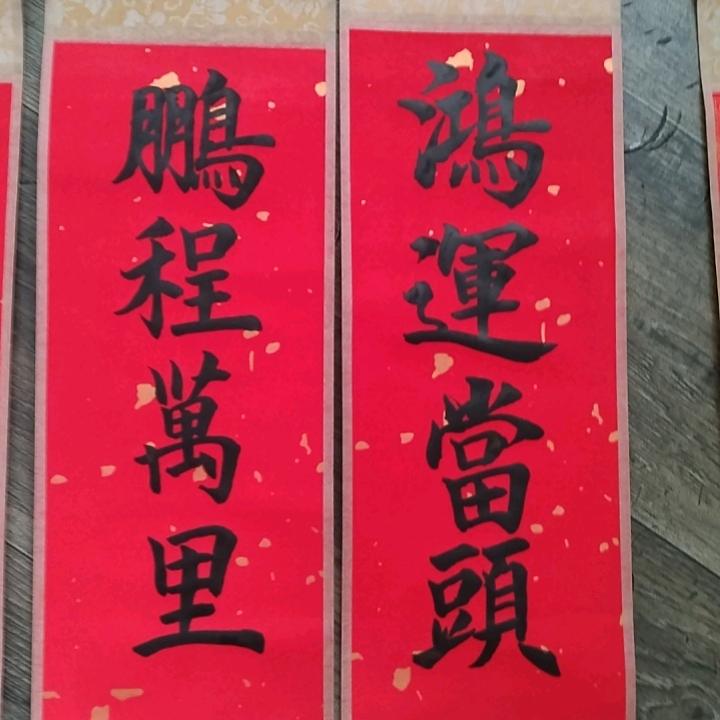 鴻運當頭
鵬程萬里